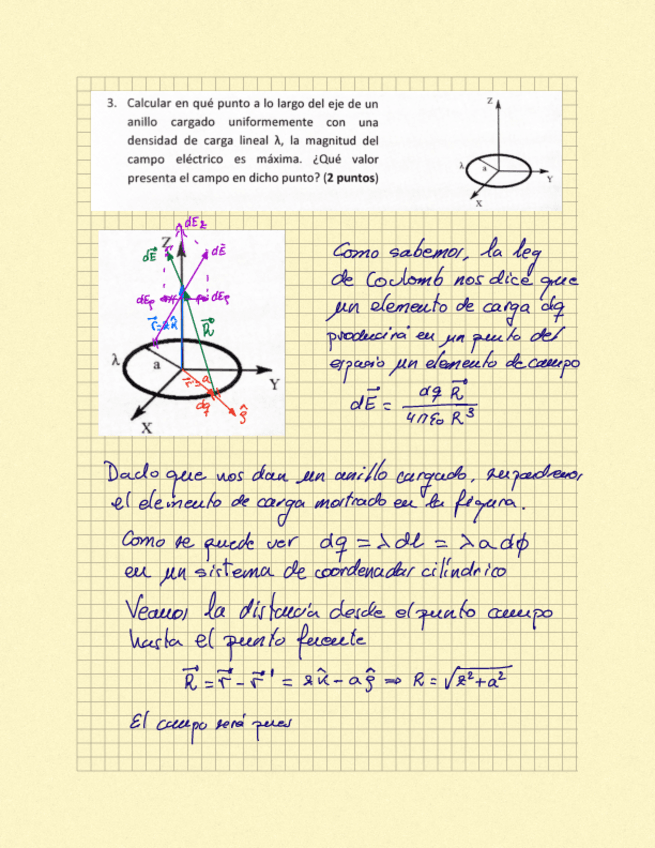 3. Calcular en qué punto a lo largo del eje de un
anillo cargado uniformemente con una
densidad de carga lineal λ, la magnitud del
campo eléctrico es máxima. ¿Qué valor
presenta el campo en dicho punto? (2 puntos)
Z
λ
a
Y
X
dE_z
Z
dE⃗
dE⃗
dE_ρ
dE_ρ
r⃗=zk̂
R⃗
λ
a
r⃗'=a
Y
dq
ρ̂
X
Como sabemos, la ley
de Coulomb nos dice que
un elemento de carga dq
producirá en un punto del
espacio un elemento de campo
dE⃗ = dq R⃗ / 4πε₀ R³
Dado que nos dan un anillo cargado, supondremos
el elemento de carga mostrado en la figura.
Como se puede ver dq = λ dl = λ a dϕ
en un sistema de coordenadas cilíndrico
Veamos la distancia desde el punto campo
hasta el punto fuente
R⃗ = r⃗ - r⃗' = zk̂ - aρ̂ ⇒ R = √z²+a²
El campo será pues